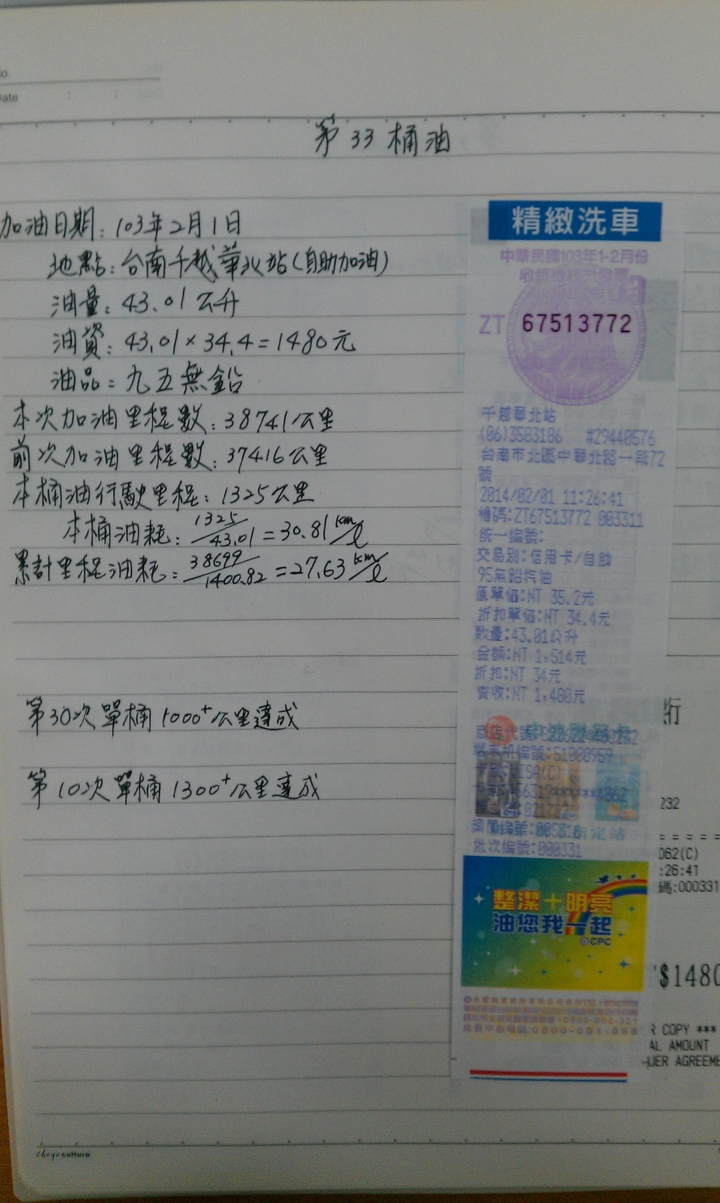 Date
第33桶油
加油日期：103年2月1日
地點：台南千越華北站(自助加油)
油量：43.01公升
油資：43.01×34.4=1480元
油品：九五無鉛
本次加油里程數：38741公里
前次加油里程數：37416公里
本桶油行駛里程：1325公里
本桶油耗：1325/43.01=30.81km/ℓ
累計里程油耗：38699/1400.82=27.63km/ℓ
第30次單桶1000⁺公里達成
第10次單桶1300⁺公里達成
精緻洗車
中華民國103年1-2月份
ZT 67513772
千越華北站
(06)3583186 #29440576
台南市北區中華北路一段72
號
2014/02/01 11:26:41
機碼:ZT67513772 003311
統一編號:
交易別:信用卡/自助
95無鉛汽油
原單價:NT 35.2元
折扣單價:NT 34.4元
數量:43.01公升
金額:NT 1,514元
折扣:NT 34元
實收:NT 1,480元
批次編號:000331
整潔+明亮
油您我一起
CPC
行
232
062(C)
:26:41
碼:000331
$1480
R COPY ***
AL AMOUNT
UER AGREEME
culture